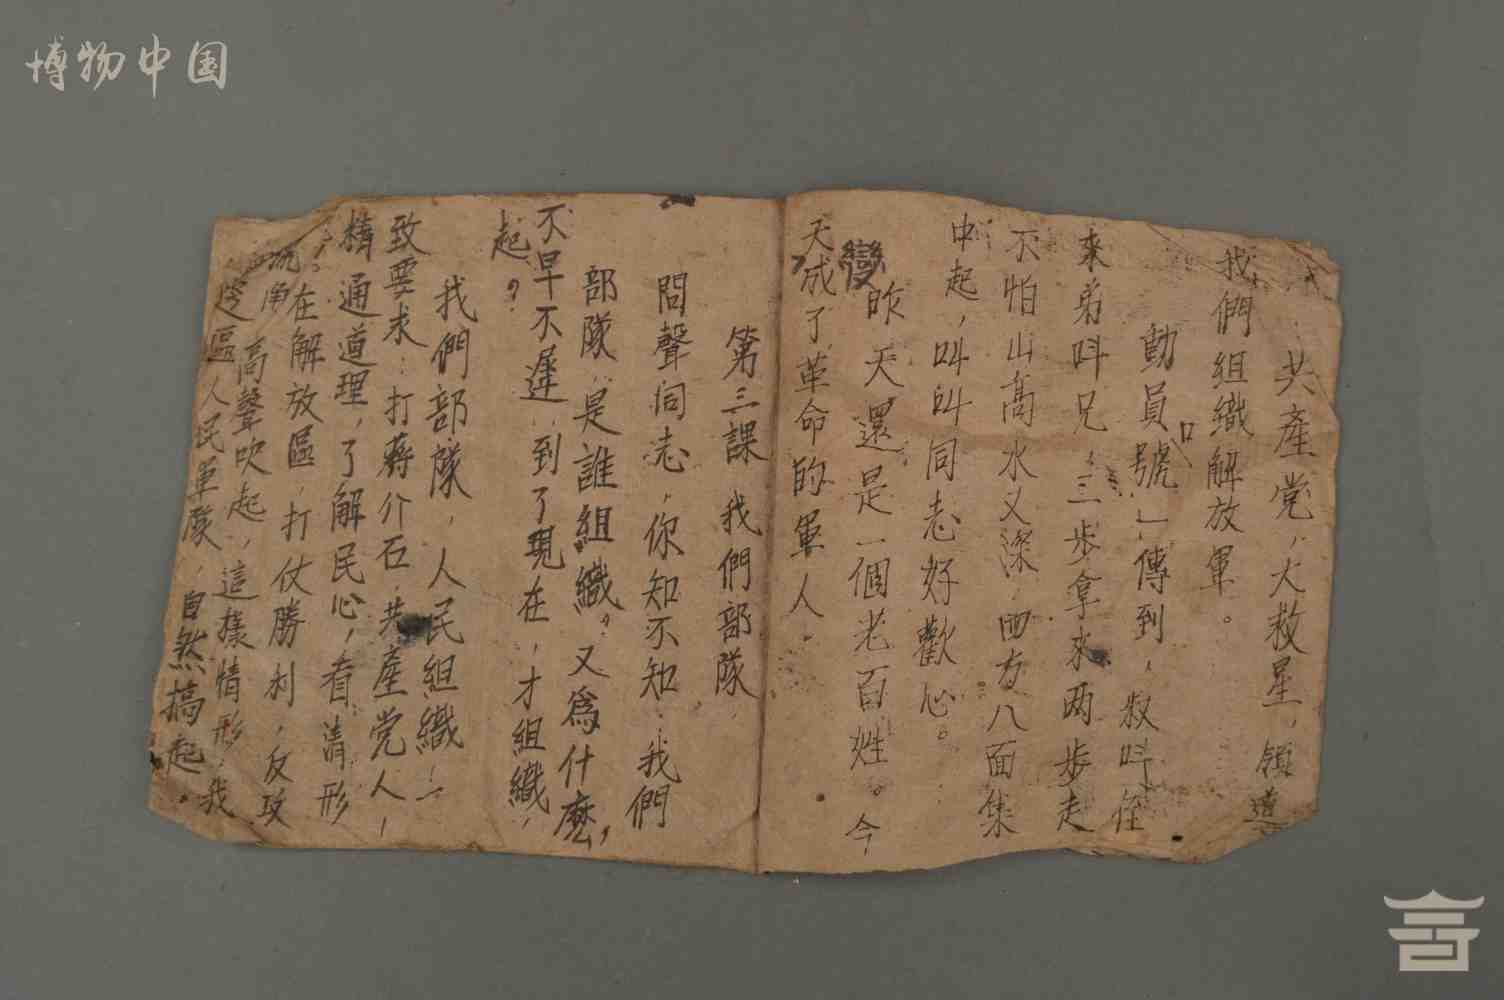 博物中国
共產党，大救星，領導
我們組織解放軍。
動員號口」傳到，叔呌侄
來弟呌兄，三步拿來两步走
不怕山高水又深，四方八面集
中起，叫叫同志好歡心。
昨天還是一個老百姓。今，
天變成了革命的軍人。
第三課 我們部隊
問聲同志，你知不知，我們
部隊，是誰組織，又為什麽，
不早不遲，到了現在，才組織，
起？
我們部隊，人民組織，一
致要求：打蔣介石，共產党人，
精通道理，了解民心，看清形
在解放區，打仗勝利，反攻
高聲吹起，這樣情形，我
邊區人民軍隊，自然搞起。